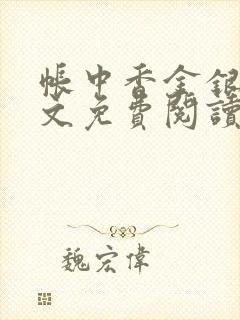 帳中香金銀
文免費閱讀
魏宏偉